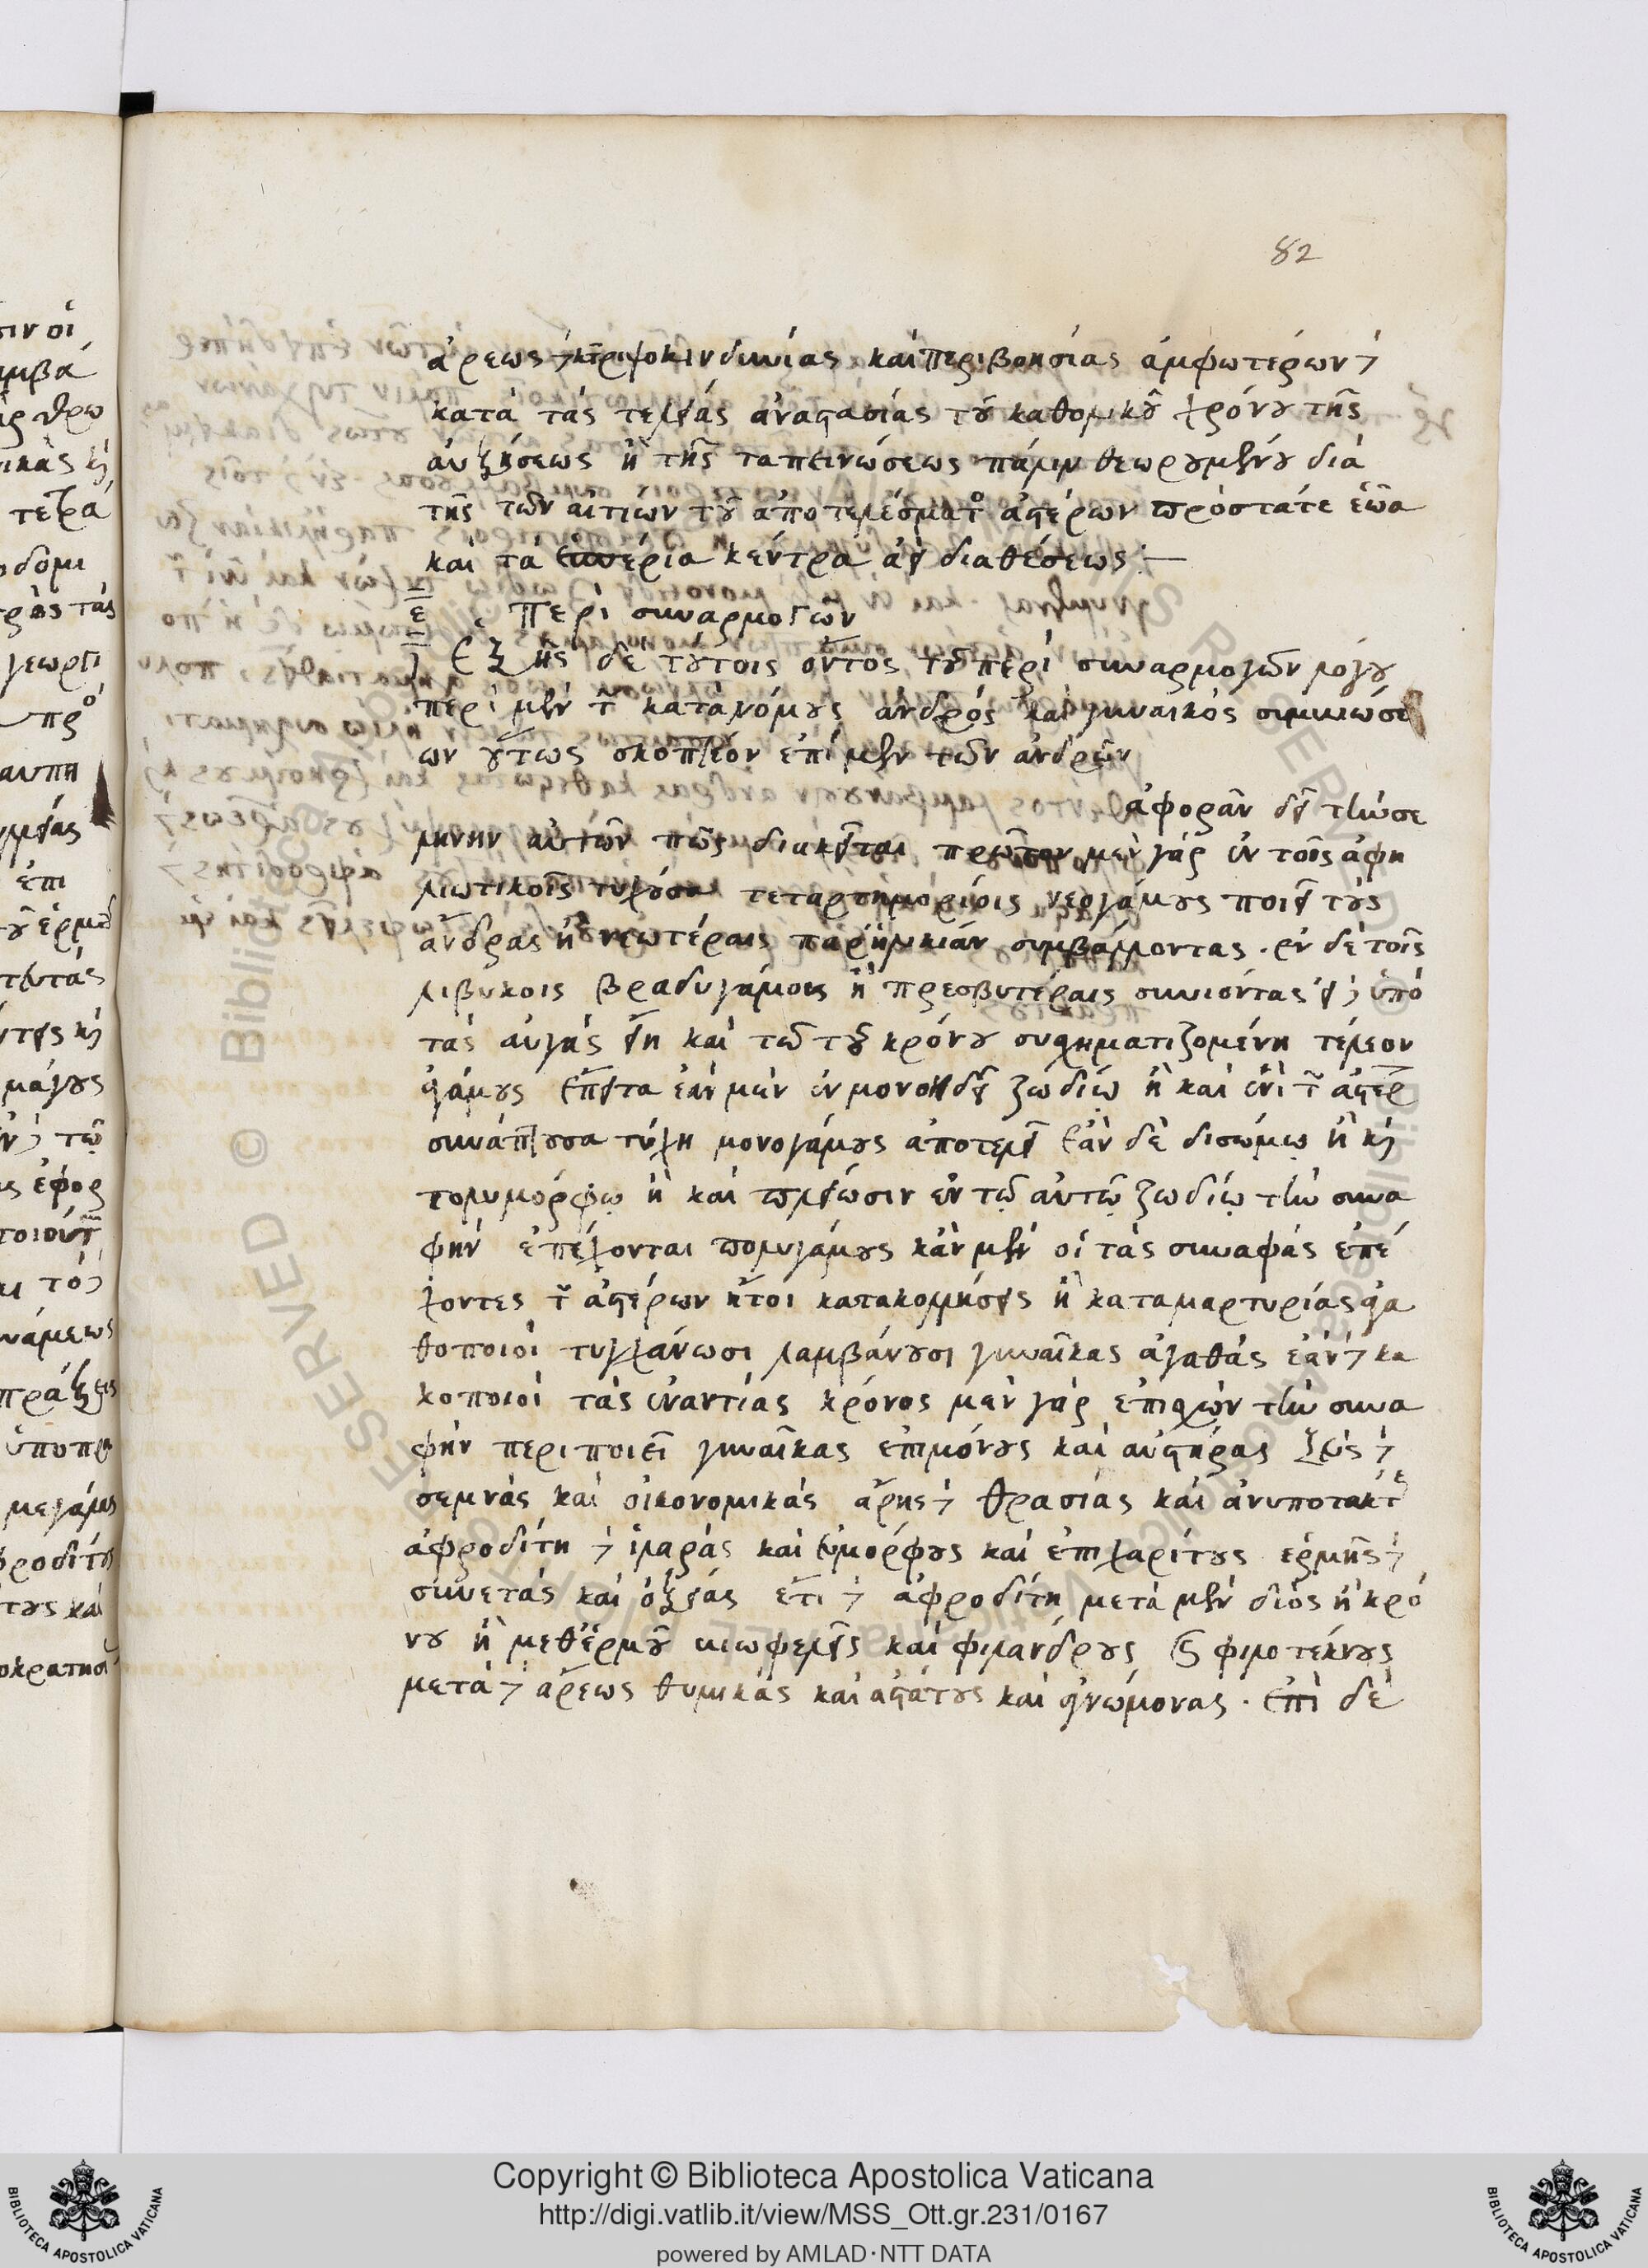 82
ἄρεως δὲ καὶ ῥιψοκινδυνίας καὶ περιβοησίας ἀμφωτέρων δὲ
κατὰ τὰς τελείας ἀναστασίας τοῦ καθολικοῦ χρόνου τῆς
αυξήσεως ἢ τῆς ταπεινώσεως πάλιν θεωρουμένου διὰ
τῆς τῶν αἰτιῶν τοῦ ἀποτελέσματος ἀστέρων πρόστατε ἑῶα
καὶ τὰ ἑσπέρια κέντρα ἀεὶ διαθέσεως :—
ε Περὶ συναρμογῶν
Ἑξῆς δὲ τούτοις ὄντος τοῦ περὶ συναρμογῶν λόγου
περὶ μὲν τῶν κατὰ νόμους ἀνδρός καὶ γυναικός συμβιώσε
ων οὕτως σκοπτέον ἐπὶ μὲν τῶν ἀνδρῶν
ἀφορᾶν δεῖ τὴν σε
λήνην αὐτῶν πῶς διακεῖται πρῶτον μὲν γὰρ ἐν τοῖς ἀφη
λιωτικοῖς τυχοῦσα τεταρτημορίοις νεογάμους ποιεῖ τοὺς
ἄνδρας ἢ νεωτέραις παρ' ἡλικίαν συμβάλλοντας. ἐν δὲ τοῖς
λιβυκοῖς βραδυγάμους ἢ πρεσβυτέραις συνιόντας εἰ δὲ ὑπὸ
τὰς αὐγὰς εἴη καὶ τῶ τοῦ κρόνου συσχηματιζομένη τέλεον
ἀγάμους ἔπειτα ἐὰν μὲν ἐν μονοειδεῖ ζωδίῳ ἢ καὶ ἑνὶ τῶν ἀστέρ
συνάπτουσα τύχη μονογάμους ἀποτελεῖ ἐὰν δὲ δισώμῳ ἢ καὶ
πολυμόρφῳ ἢ καὶ πλείωσιν ἐν τῷ αὐτῷ ζωδίῳ τὴν συνα
φὴν ἐπέχονται πολυγάμους κἂν μὲν οἱ τὰς συναφὰς ἐπέ
χοντες τῶν ἀστέρων ἤτοι κατακολλήσεις ἢ καταμαρτυρίας ἀγα
θοποιοὶ τυγχάνωσι λαμβάνουσι γυναῖκας ἀγαθάς ἐὰν δὲ κα
κοποιοὶ τὰς ἐναντίας κρόνος μὲν γὰρ ἐπισχὼν τὴν συνα
φὴν περιποιεῖ γυναῖκας ἐπιμόνους καὶ αὐστηράς ζεύς δὲ
σεμνάς καὶ οἰκονομικάς ἄρης δὲ θρασίας καὶ ἀνυποτάκτ
ἀφροδίτη δὲ ἱλαράς καὶ εὐμόρφους καὶ ἐπιχαρίτους ἑρμῆς δὲ
συνετάς καὶ ὀξείας ἔτι δὲ ἀφροδίτη μετὰ μὲν διὸς ἢ κρό
νου ἢ μεθ' ἑρμοῦ βιωφελεῖς καὶ φιλάνδρους καὶ φιλοτέκνους
μετὰ δὲ ἄρεως θυμικάς καὶ ἀστάτους καὶ ἀγνώμονας. ἐπὶ δὲ
Copyright © Biblioteca Apostolica Vaticana
http://digi.vatlib.it/view/MSS_Ott.gr.231/0167
powered by AMLAD · NTT DATA
BIBLIOTECA APOSTOLICA VATICANA
BIBLIOTECA APOSTOLICA VATICANA